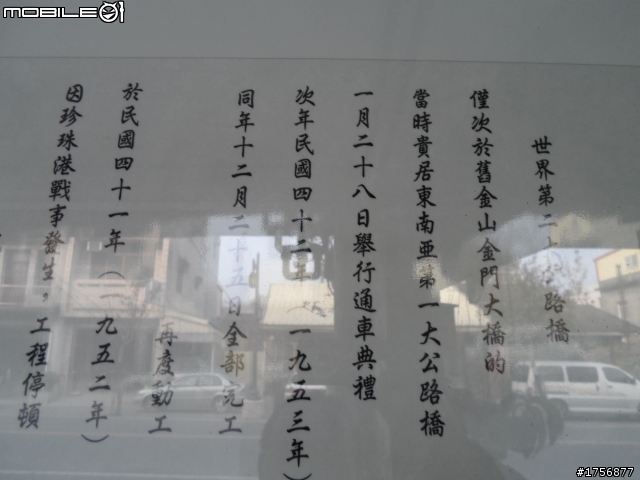 MOBILE01
因珍珠港戰事發生，工程停頓
於民國四十一年（一九五二年）
再度動工
同年十二月二十五日全部完工
次年民國四十二年（一九五三年）
一月二十八日舉行通車典禮
當時貴居東南亞第一大公路橋
僅次於舊金山金門大橋的
世界第二大公路橋
#1756877